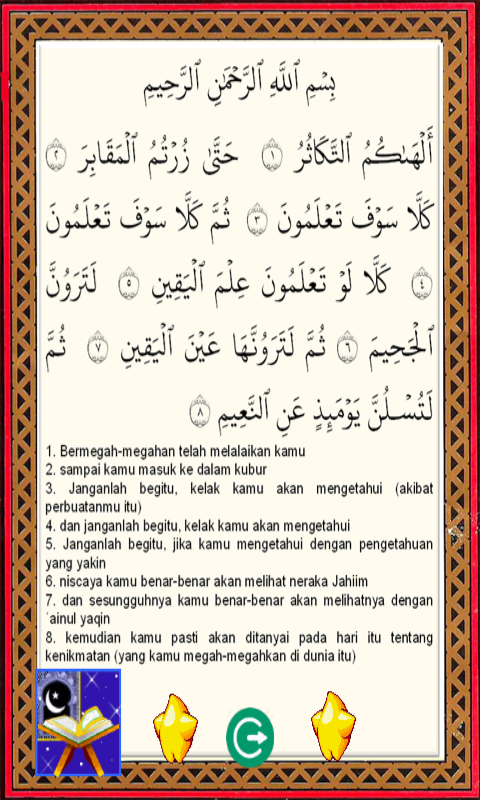 بِسْمِ ٱللَّهِ ٱلرَّحْمَٰنِ ٱلرَّحِيمِ
أَلْهَىٰكُمُ ٱلتَّكَاثُرُ ١ حَتَّىٰ زُرْتُمُ ٱلْمَقَابِرَ ٢
كَلَّا سَوْفَ تَعْلَمُونَ ٣ ثُمَّ كَلَّا سَوْفَ تَعْلَمُونَ
٤ كَلَّا لَوْ تَعْلَمُونَ عِلْمَ ٱلْيَقِينِ ٥ لَتَرَوُنَّ
ٱلْجَحِيمَ ٦ ثُمَّ لَتَرَوُنَّهَا عَيْنَ ٱلْيَقِينِ ٧ ثُمَّ
لَتُسْـَٔلُنَّ يَوْمَئِذٍ عَنِ ٱلنَّعِيمِ ٨
1. Bermegah-megahan telah melalaikan kamu
2. sampai kamu masuk ke dalam kubur
3. Janganlah begitu, kelak kamu akan mengetahui (akibat
perbuatanmu itu)
4. dan janganlah begitu, kelak kamu akan mengetahui
5. Janganlah begitu, jika kamu mengetahui dengan pengetahuan
yang yakin
6. niscaya kamu benar-benar akan melihat neraka Jahiim
7. dan sesungguhnya kamu benar-benar akan melihatnya dengan
´ainul yaqin
8. kemudian kamu pasti akan ditanyai pada hari itu tentang
kenikmatan (yang kamu megah-megahkan di dunia itu)